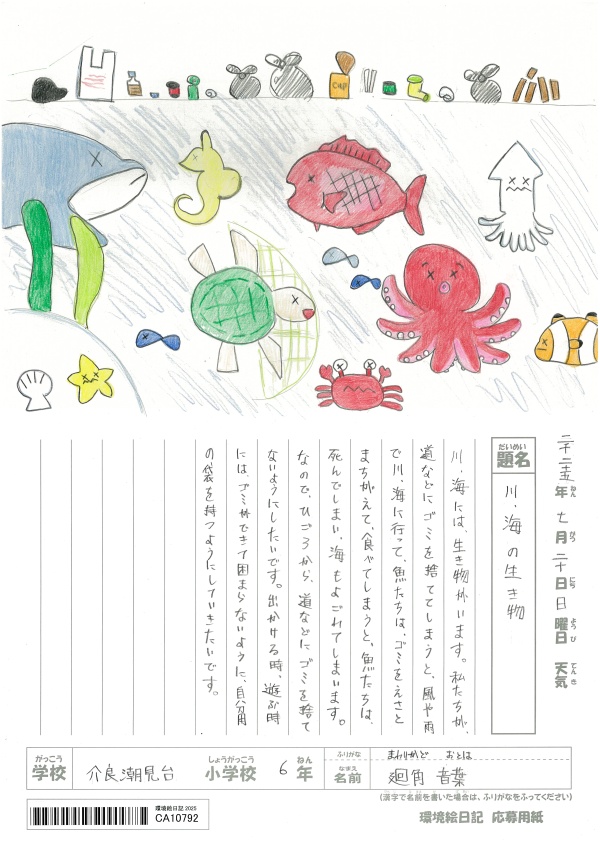 CUP
二千二五年ねん 七月がつ 二十日にち 日曜日ようび 天気てんき
題名だいめい 川・海の生き物
川・海には、生き物がいます。私たちが、
道などにゴミを捨ててしまうと、風や雨
で川、海に行って、魚たちは、ゴミをえさと
まちがえて、食べてしまうと、魚たちは、
死んでしまい、海もよごれてしまいます。
なので、ひごろから、道などにゴミを捨て
ないようにしたいです。出かける時、遊ぶ時
には、ゴミができて困まらないように、自分用
の袋を持つようにしていきたいです。
がっこう しょうがっこう ねん ふりがな まわりかど おとは
学校 介良潮見台 小学校 6年 なまえ 名前 廻角 音葉
(漢字で名前を書いた場合は、ふりがなをふってください)
環境絵日記 2025
CA10792
環境絵日記 応募用紙